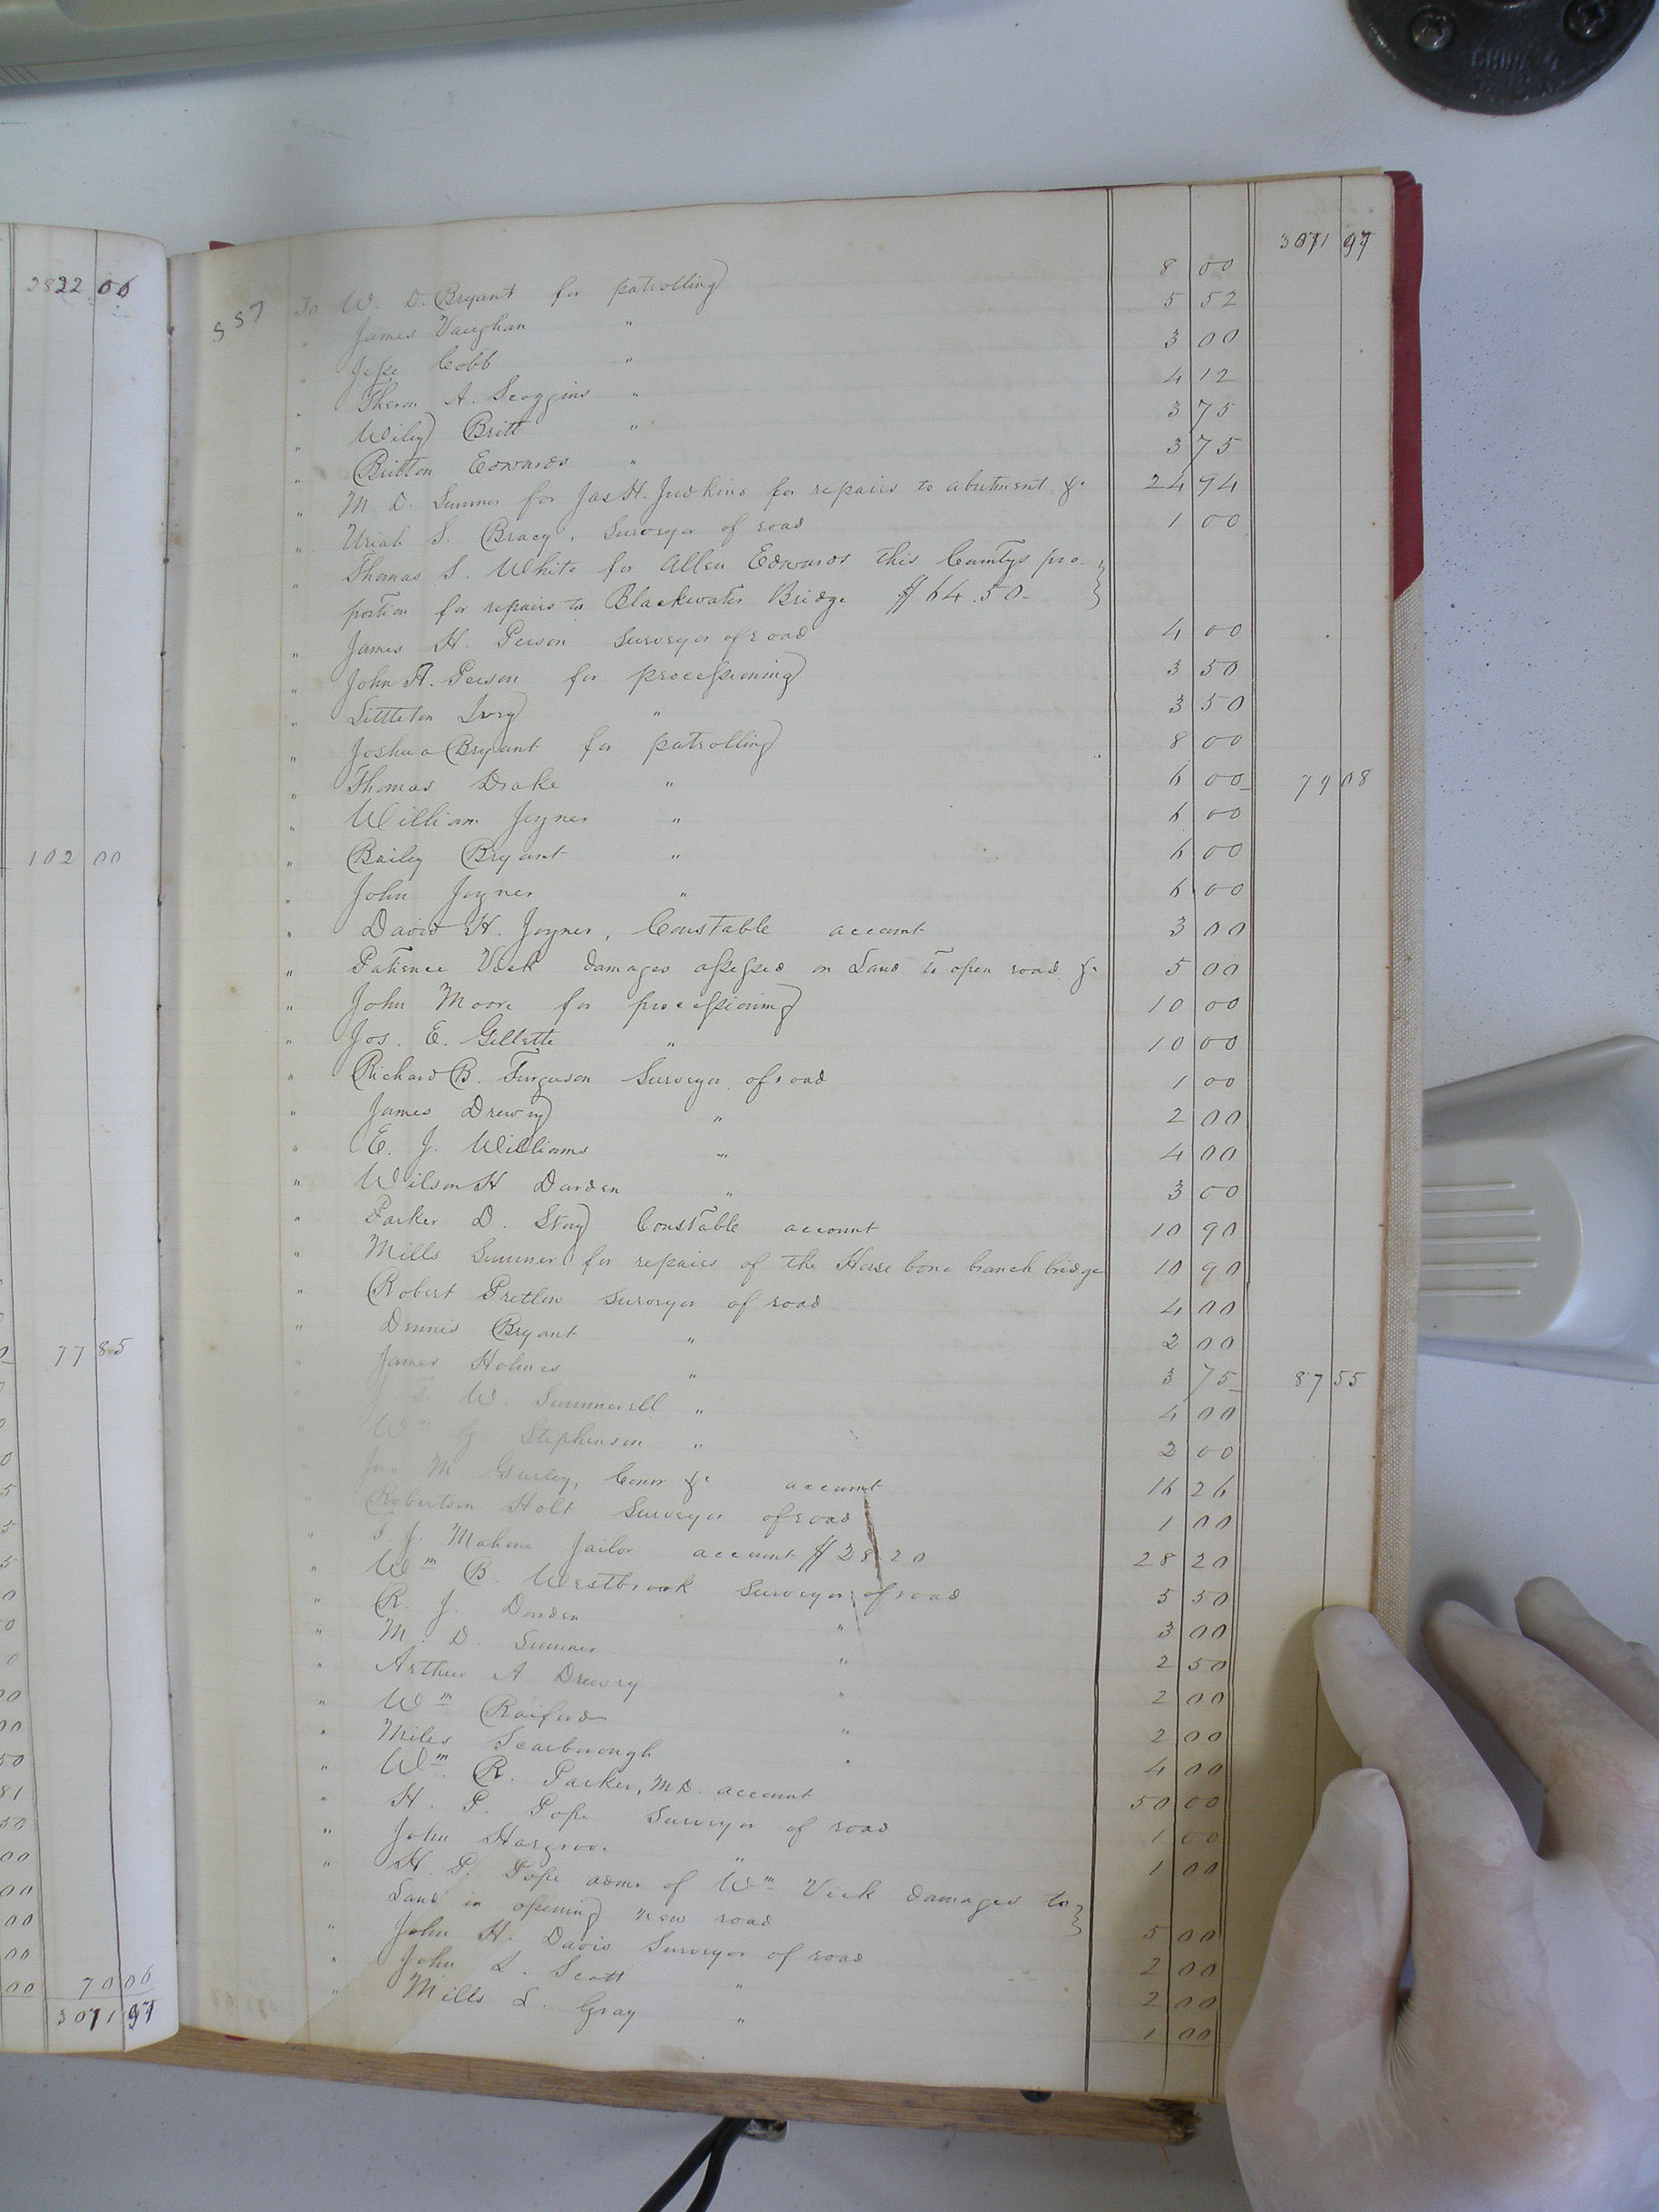 2822 06
102 00
77 85
70 06
3071 97
3071 97
557 To W. D. Bryant for patrolling 8 00
" James Vaughan " 5 52
" Jesse Cobb " 3 00
" Theron A. Scoggins " 4 12
" Wiley Britt " 3 75
" Britton Edwards " 3 75
" M. D. Sumner for Jas H. Judkins for repairs to abutment &c 24 94
" Uriah S. Bracy, Surveyor of road 1 00
" Thomas S. White for Allen Edwards this Countys pro-
portion for repairs to Blackwater Bridge $64.50-
" James H. Person Surveyor of road 4 00
" John A. Person for processioning 3 50
" Littleton Ivey " 3 50
" Joshua Bryant for patrolling 8 00
" Thomas Drake " 6 00 79 08
" William Joyner " 6 00
" Bailey Bryant " 6 00
" John Joyner " 6 00
" David H. Joyner, Constable account 3 00
" Patience Vick damages assessed on Land to open road &c 5 00
" John Moore for processioning 10 00
" Jos. E. Gillette " 10 00
" Richard B. Ferguson Surveyor of road 1 00
" James Drewry " 2 00
" E. J. Williams " 4 00
" Wilson H Darden " 3 00
" Parker D. Story Constable account 10 90
" Mills Sumner for repairs of the Horse bone branch bridge 10 90
" Robert Pretlow surveyor of road 4 00
" Dennis Bryant " 2 00
" James Holmes " 3 75 87 55
" J. T. W. Summerell " 4 00
" Wm G Stephenson " 2 00
" Jno M. Gurley, Comr &c account 16 26
" Robertson Holt Surveyor of road 1 00
" T. J. Mahone Jailor account $28 20 28 20
" Wm B. Westbrook Surveyor of road 5 50
" R. J. Darden " 3 00
" M. D. Sumner " 2 50
" Arthur A Drewry " 2 00
" Wm Raiford " 2 00
" Miles Scarborough " 4 00
" Wm R. Parker, M.D. account 50 00
" H. P. Pope Surveyor of road 1 00
" John Hargrove " 1 00
" H. P. Pope admr of Wm Vick damages to
Land in opening new road 5 00
" John H. Davis Surveyor of road 2 00
" John L. Scott " 2 00
" Mills L. Gray " 1 00